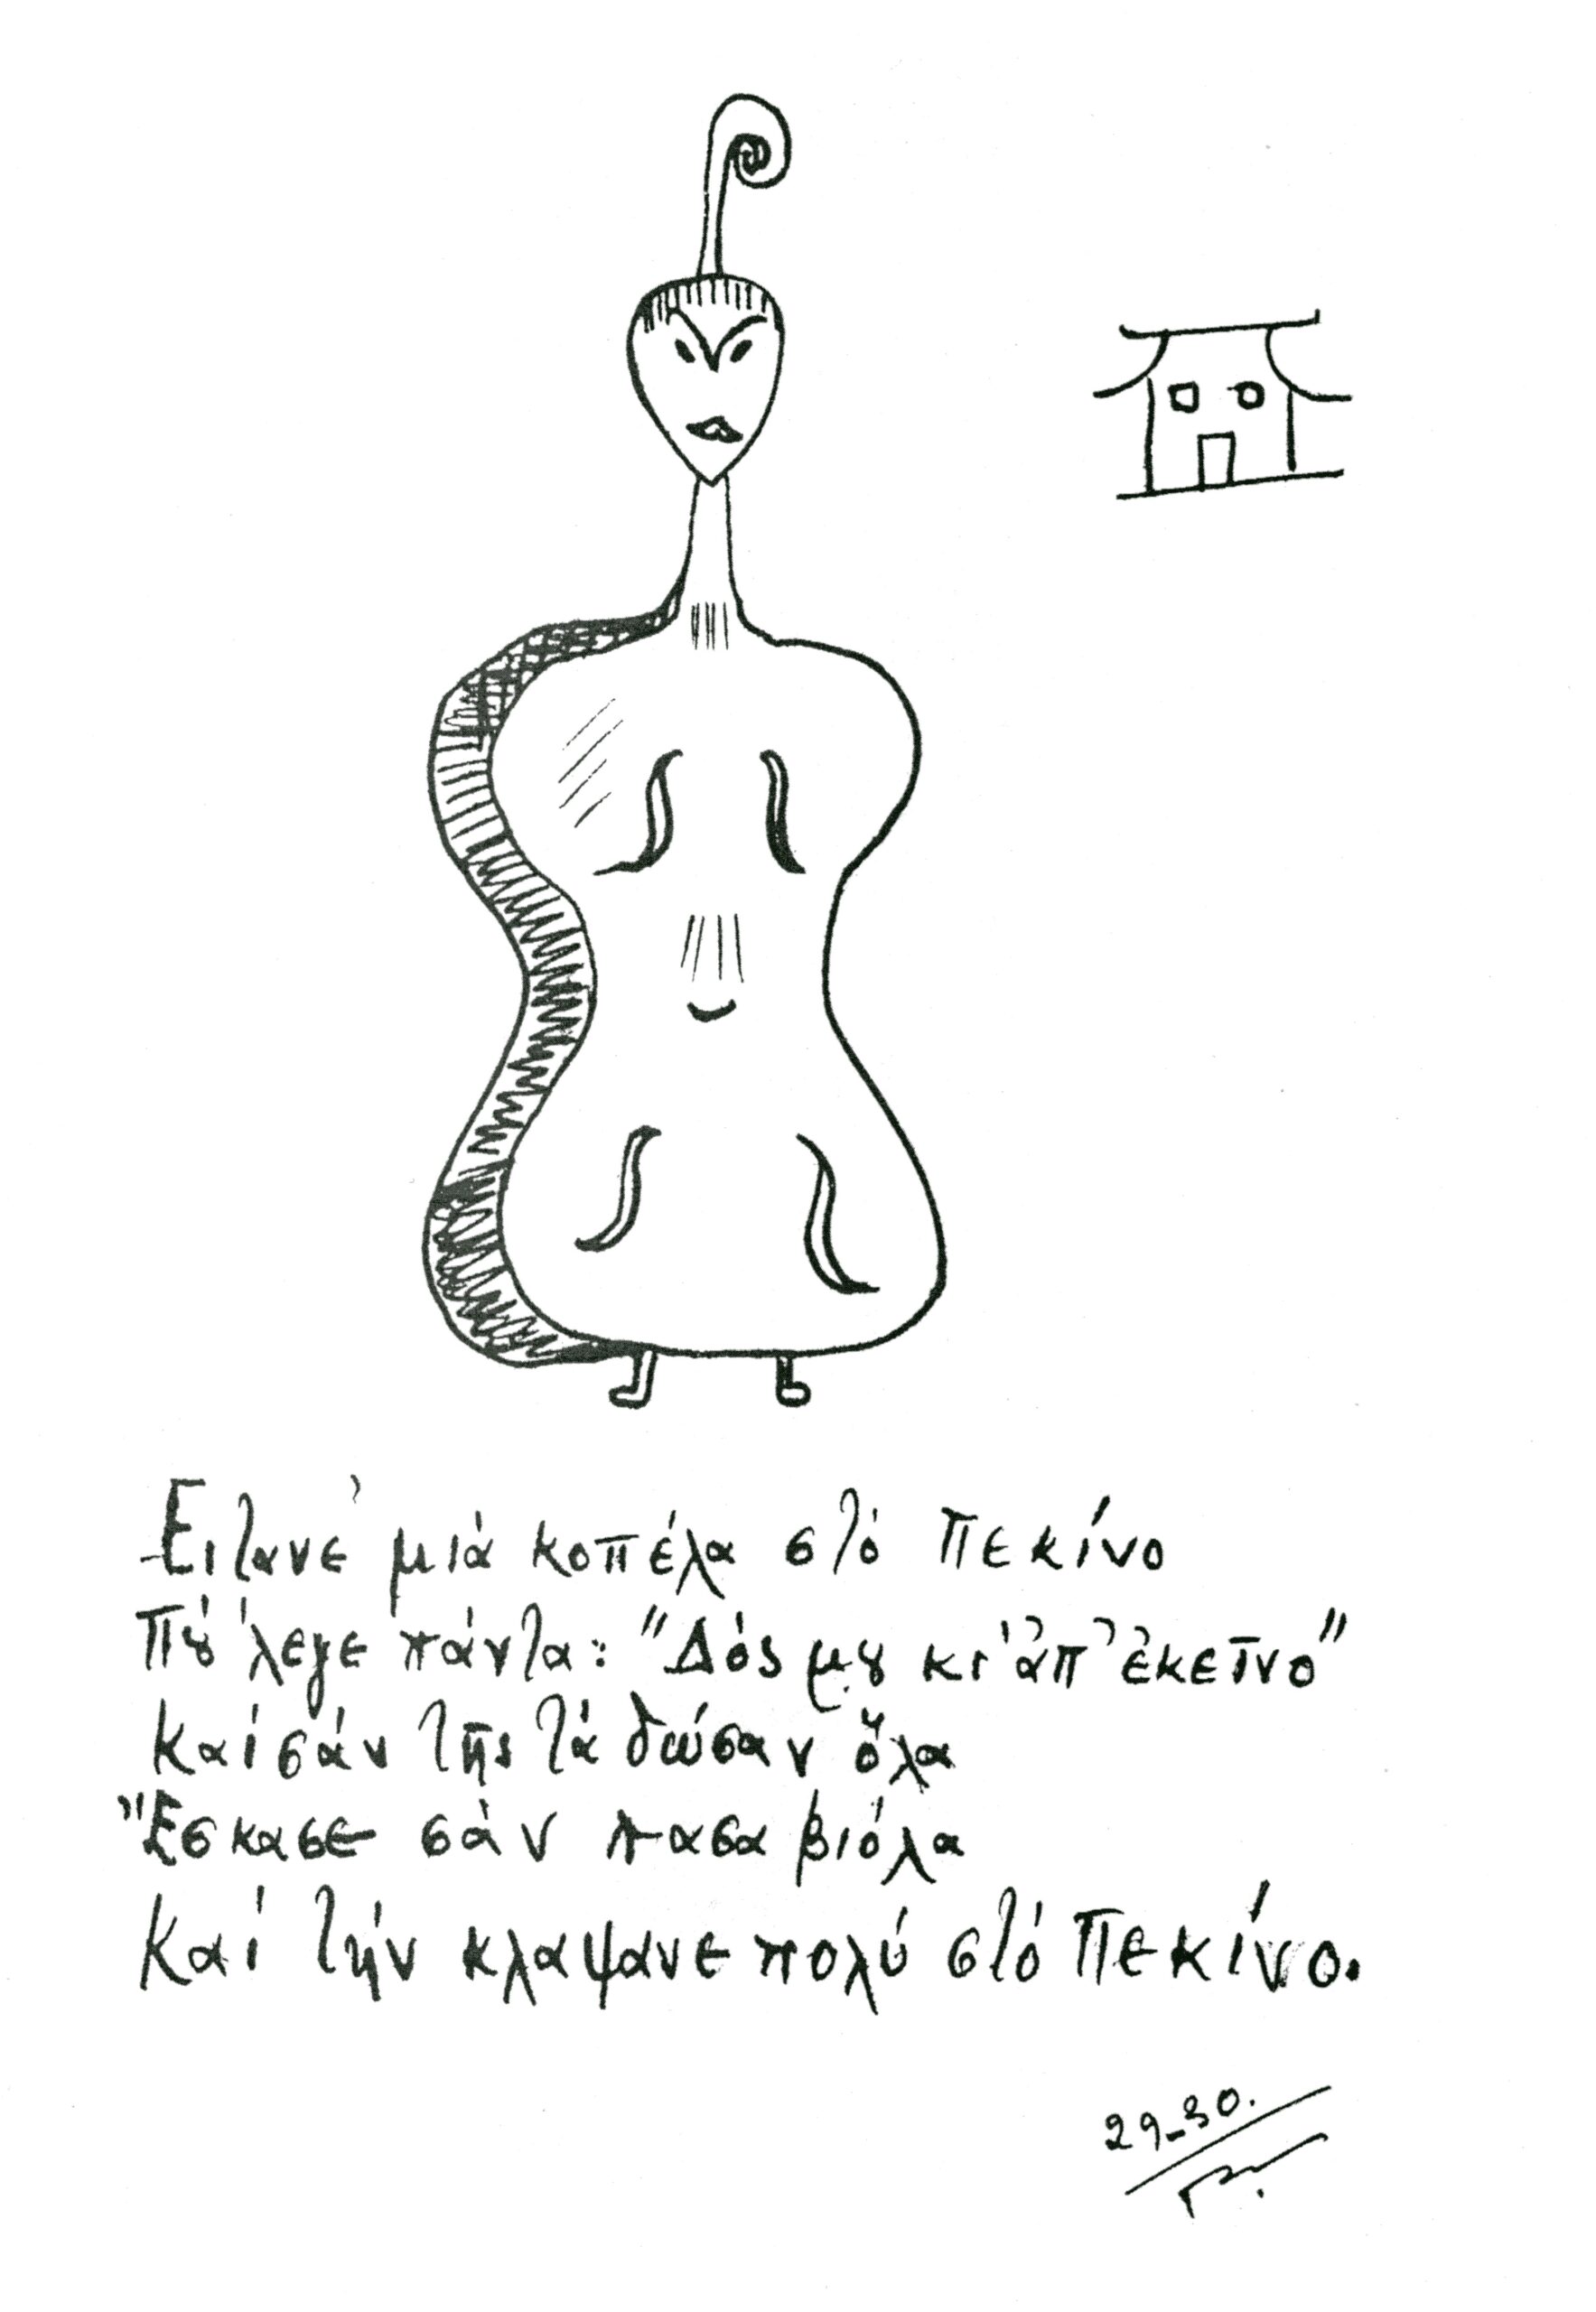 Εἴτανε μιὰ κοπέλα στὸ Πεκίνο
Πȣ̓ λεγε πάντα: "Δός μȣ κι ἀπ' ἐκεῖνο"
Καὶ σὰν τῆς τὰ δώσαν ὅλα
Ἔσκασε σὰν πασα βιόλα
Καὶ τὴν κλαψανε πολύ στὸ Πεκίνο.
29-30.